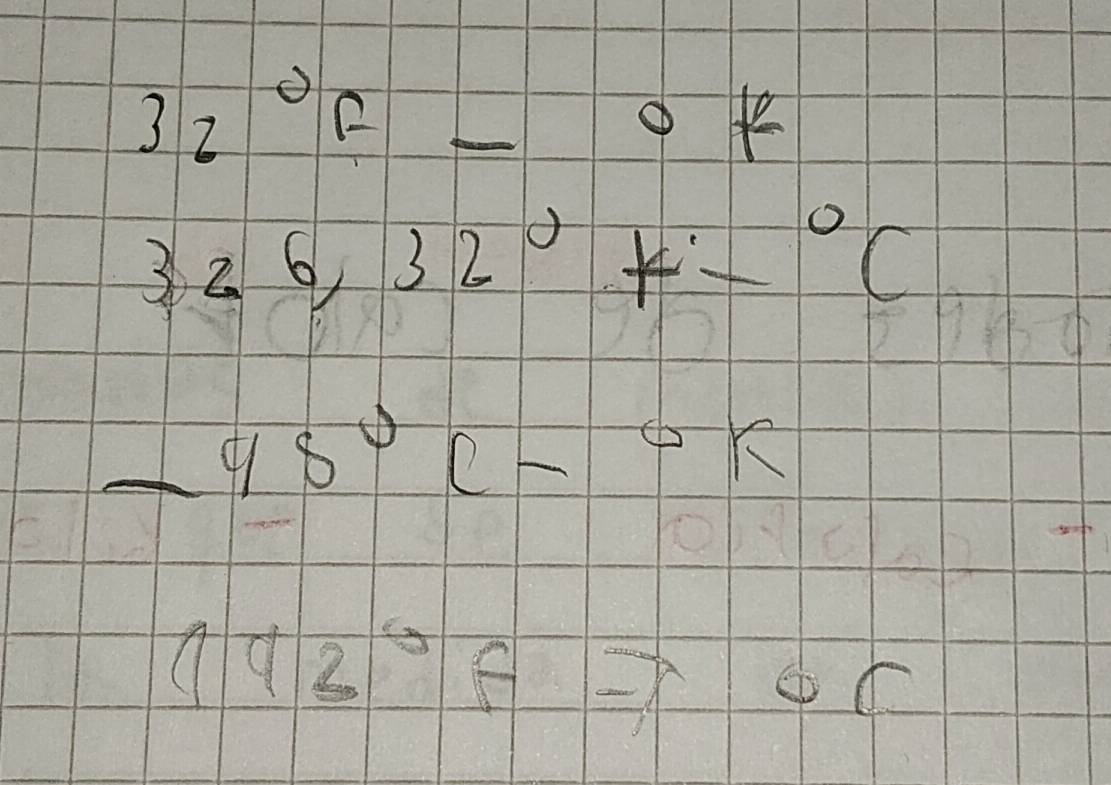 32 °F — ° K
326,32° K — °C
— 98° C — ° K
192° F → ° C